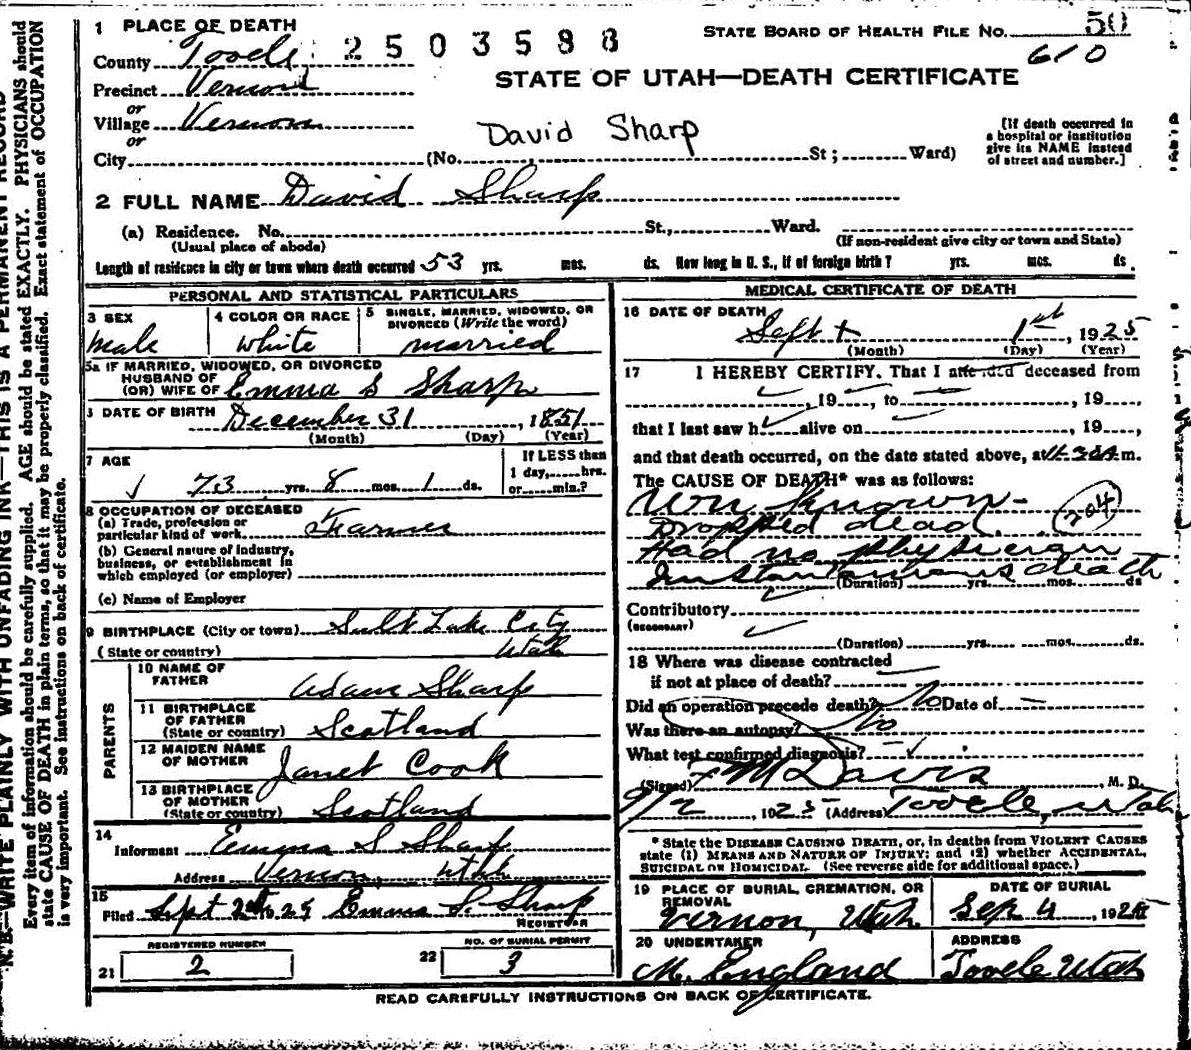 1 PLACE OF DEATH
STATE BOARD OF HEALTH FILE No. 50
County Tooele 2503588
610
STATE OF UTAH—DEATH CERTIFICATE
Precinct Vernon
or
Village Vernon
or
David Sharp
City (No. St; Ward)
[If death occurred in
a hospital or institution
give its NAME instead
of street and number.]
2 FULL NAME David Sharp
(a) Residence. No. St., Ward.
(Usual place of abode)
(If non-resident give city or town and State)
Length of residence in city or town where death occurred 53 yrs. mos. ds. How long in U. S., if of foreign birth? yrs. mos. ds.
PERSONAL AND STATISTICAL PARTICULARS
3 SEX
male
4 COLOR OR RACE
white
5 SINGLE, MARRIED, WIDOWED, OR
DIVORCED (Write the word)
married
5a IF MARRIED, WIDOWED, OR DIVORCED
HUSBAND OF
(OR) WIFE OF Emma S Sharp
DATE OF BIRTH December 31, 1851
(Month) (Day) (Year)
7 AGE
73 yrs. 8 mos. 1 ds.
If LESS than
1 day, hrs.
or min.?
8 OCCUPATION OF DECEASED
(a) Trade, profession or
particular kind of work Farmer
(b) General nature of industry,
business, or establishment in
which employed (or employer)
(c) Name of Employer
9 BIRTHPLACE (City or town) Salt Lake City
(State or country) Utah
PARENTS
10 NAME OF
FATHER Adam Sharp
11 BIRTHPLACE
OF FATHER
(State or country) Scotland
12 MAIDEN NAME
OF MOTHER Janet Cook
13 BIRTHPLACE
OF MOTHER
(State or country) Scotland
14
Informant Emma S Sharp
Address Vernon, Utah
15
Filed Sept 2nd 1925 Emma S. Sharp
REGISTRAR
REGISTERED NUMBER
21 2
NO. OF BURIAL PERMIT
22 3
MEDICAL CERTIFICATE OF DEATH
16 DATE OF DEATH
Sept 1st, 1925
(Month) (Day) (Year)
17 I HEREBY CERTIFY, That I attended deceased from
, 19 , to , 19 ,
that I last saw h alive on , 19 ,
and that death occurred, on the date stated above, at m.
The CAUSE OF DEATH* was as follows:
Unknown-
Dropped dead. (204)
Had no physician
Instantaneous death
(Duration) yrs. mos. ds
Contributory
(SECONDARY)
(Duration) yrs. mos. ds.
18 Where was disease contracted
if not at place of death?
Did an operation precede death? No Date of
Was there an autopsy? No
What test confirmed diagnosis?
(Signed) F M Davis, M. D.
9/2, 1925 (Address) Tooele, Utah
* State the DISEASE CAUSING DEATH, or, in deaths from VIOLENT CAUSES
state (1) MEANS AND NATURE OF INJURY; and (2) whether ACCIDENTAL,
SUICIDAL OR HOMICIDAL. (See reverse side for additional space.)
19 PLACE OF BURIAL, CREMATION, OR
REMOVAL
Vernon, Utah
DATE OF BURIAL
Sep 4, 1925
20 UNDERTAKER
M. England
ADDRESS
Tooele Utah
READ CAREFULLY INSTRUCTIONS ON BACK OF CERTIFICATE.
N. B.—WRITE PLAINLY WITH UNFADING INK—THIS IS A PERMANENT RECORD
Every item of information should be carefully supplied. AGE should be stated EXACTLY. PHYSICIANS should
state CAUSE OF DEATH in plain terms, so that it may be properly classified. Exact statement of OCCUPATION
is very important. See instructions on back of certificate.